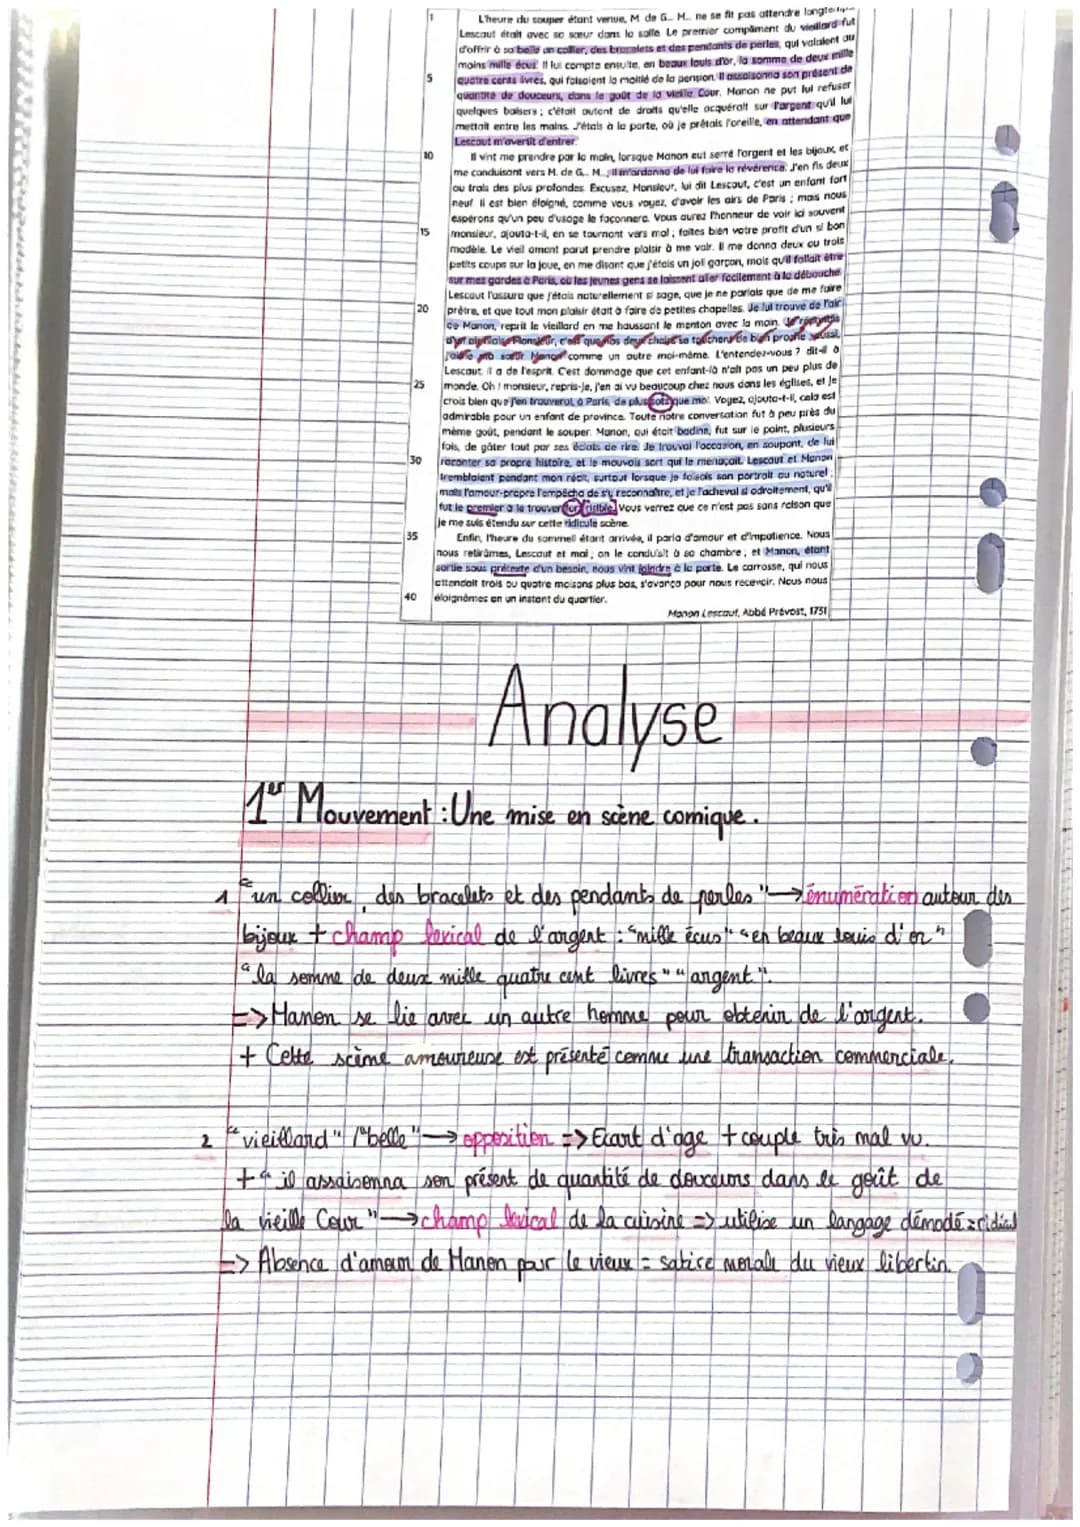 1 L'heure du souper étant venue, M. de G... M... ne se fit pas attendre
Lescaut était avec sa sœur dans la salle. Le premier compliment du vieillard fut
d'offrir à sa belle un collier, des bracelets et des pendants de perles, qui valaient au
moins mille écus. Il lui compta ensuite, en beaux louis d'or, la somme de deux mille
5 quatre cents livres, qui faisaient la moitié de la pension. Il assaisonna son présent de
quantité de douceurs, dans le goût de la vieille Cour. Manon ne put lui refuser
quelques baisers ; c'était autant de droits qu'elle acquérait sur l'argent qu'il lui
mettait entre les mains. J'étais à la porte, où je prêtais l'oreille, en attendant que
Lescaut m'avertît d'entrer.
10 Il vint me prendre par la main, lorsque Manon eut serré l'argent et les bijoux, et
me conduisant vers M. de G... M..., il m'ordonna de lui faire la révérence. J'en fis deux
ou trois des plus profondes. Excusez, Monsieur, lui dit Lescaut, c'est un enfant fort
neuf. Il est bien éloigné, comme vous voyez, d'avoir les airs de Paris ; mais nous
espérons qu'un peu d'usage le façonnera. Vous aurez l'honneur de voir ici souvent
15 monsieur, ajouta-t-il, en se tournant vers moi ; faites bien votre profit d'un si bon
modèle. Le vieil amant parut prendre plaisir à me voir. Il me donna deux ou trois
petits coups sur la joue, en me disant que j'étais un joli garçon, mais qu'il fallait être
sur mes gardes à Paris, où les jeunes gens se laissent aller facilement à la débauche.
Lescaut l'assura que j'étais naturellement si sage, que je ne parlais que de me faire
20 prêtre, et que tout mon plaisir était à faire de petites chapelles. Je lui trouve de l'air
de Manon, reprit le vieillard en me haussant le menton avec la main. Je répondis
d'un air niais : Monsieur, c'est que nos deux chairs se touchent de bien proche ; aussi,
j'aime ma sœur Manon comme un autre moi-même. L'entendez-vous ? dit-il à
Lescaut, il a de l'esprit. C'est dommage que cet enfant-là n'ait pas un peu plus de
25 monde. Oh ! monsieur, repris-je, j'en ai vu beaucoup chez nous dans les églises, et je
crois bien que j'en trouverai, à Paris, de plus sots que moi. Voyez, ajouta-t-il, cela est
admirable pour un enfant de province. Toute notre conversation fut à peu près du
même goût, pendant le souper. Manon, qui était badine, fut sur le point, plusieurs
fois, de gâter tout par ses éclats de rire. Je trouvai l'occasion, en soupant, de lui
30 raconter sa propre histoire, et le mauvais sort qui le menaçait. Lescaut et Manon
tremblaient pendant mon récit, surtout lorsque je faisais son portrait au naturel ;
mais l'amour-propre l'empêcha de s'y reconnaître, et je l'achevai si adroitement, qu'il
fut le premier à le trouver fort risible. Vous verrez que ce n'est pas sans raison que
je me suis étendu sur cette ridicule scène.
35 Enfin, l'heure du sommeil étant arrivée, il parla d'amour et d'impatience. Nous
nous retirâmes, Lescaut et moi ; on le conduisit à sa chambre, et Manon, étant
sortie sous prétexte d'un besoin, nous vint joindre à la porte. Le carrosse, qui nous
attendait trois ou quatre maisons plus bas, s'avança pour nous recevoir. Nous nous
40 éloignâmes en un instant du quartier.
Manon Lescaut, Abbé Prévost, 1731
Analyse
1er Mouvement : Une mise en scène comique.
1 "un collier, des bracelets et des pendants de perles" → énumération autour des
bijoux + champ lexical de l'argent : "mille écus" "en beaux louis d'or"
"la somme de deux mille quatre cent livres" "argent".
=> Manon se lie avec un autre homme pour obtenir de l'argent.
+ Cette scène amoureuse est présenté comme une transaction commerciale.
2 "vieillard" / "belle" → opposition => Ecart d'age + couple très mal vu.
+ "il assaisonna son présent de quantité de douceurs dans le goût de
la vieille Cour" → champ lexical de la cuisine => utilise un langage démodé =
=> Absence d'amour de Manon pour le vieux = satire morale du vieux libertin.